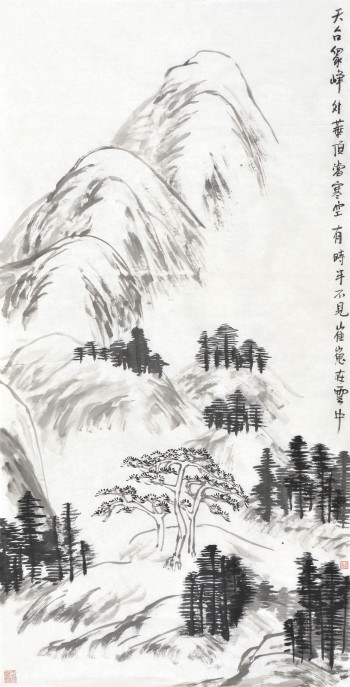 天台眾峰外華頂當寒空有時半不見崔嵬在雲中